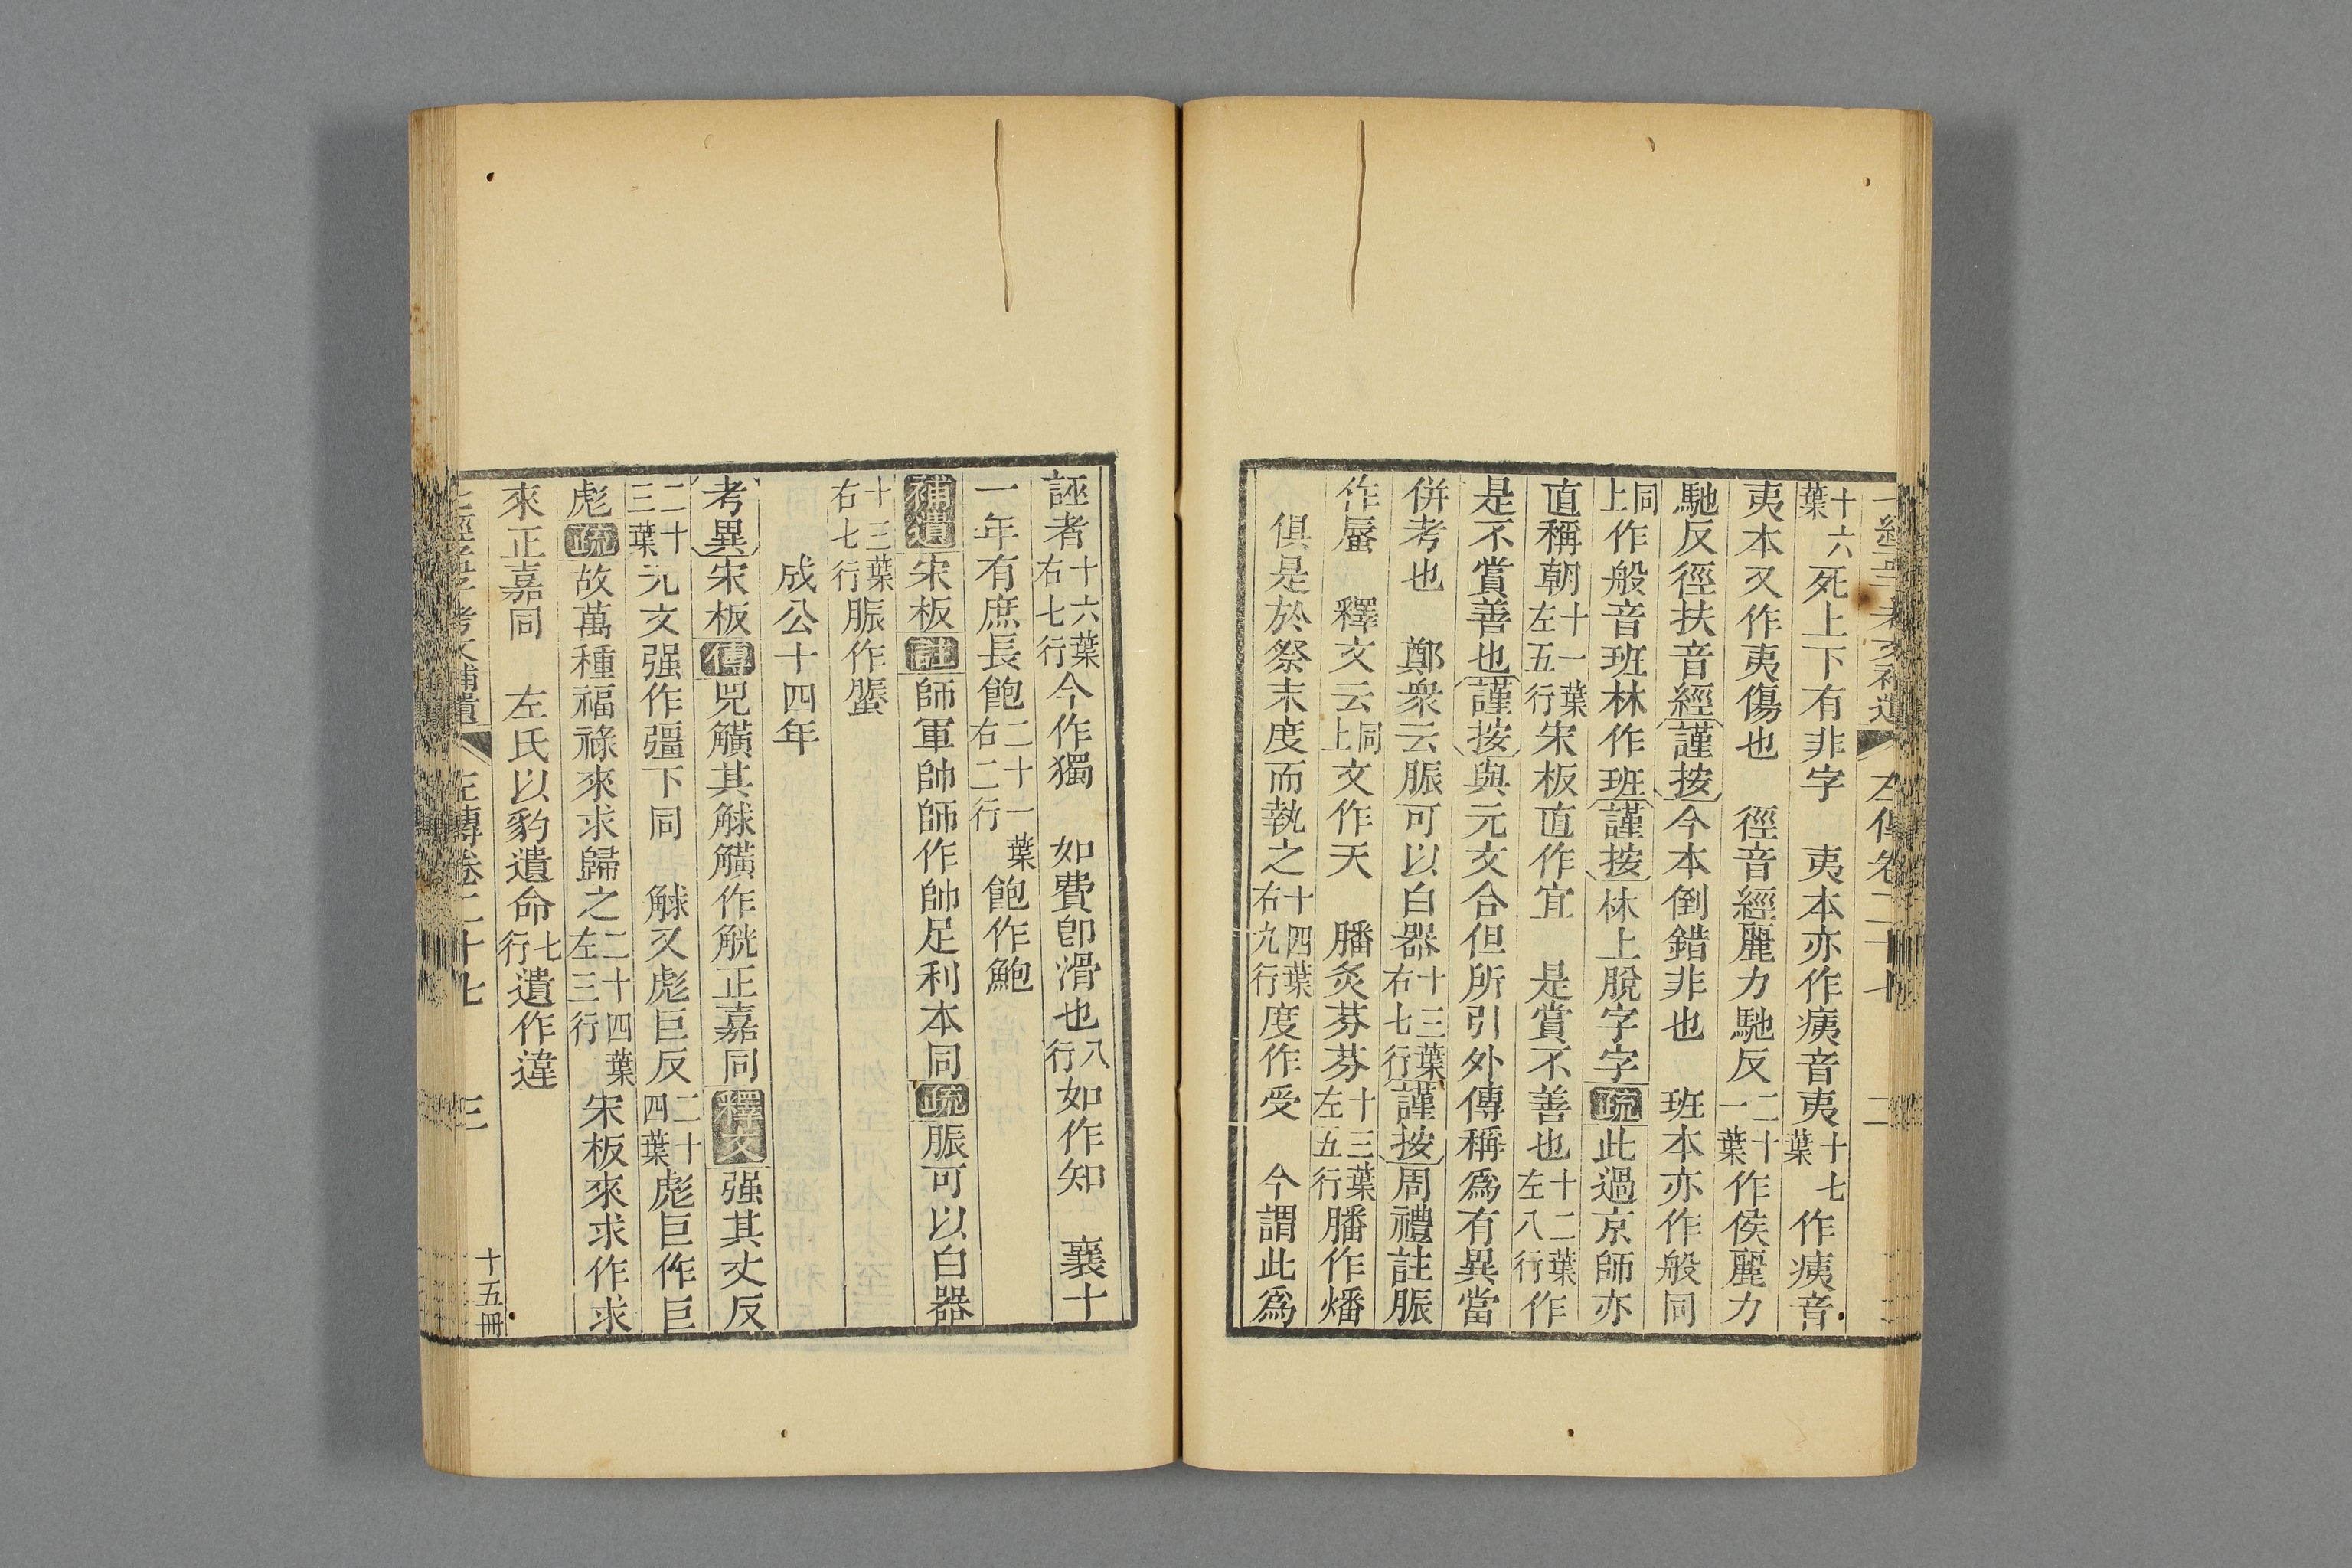 七經孟子考文補遺 左傳卷二十七 二
十六葉死上下有非字 夷本亦作痍音夷十七葉作痍音
夷本又作夷傷也 徑音經麗力馳反二十一葉作侯麗力
馳反徑扶音經謹按今本倒錯非也 班本亦作般同
上同作般音班林作班謹按林上脫字字疏此過京師亦
直稱朝十一葉左五行宋板直作宜 是賞不善也十二葉左八行作
是不賞善也謹按與元文合但所引外傳稱爲有異當
併考也 鄭衆云脤可以白器十三葉右七行謹按周禮註脤
作蜃 釋文云同上文作天 膰炙芬芬十三葉左五行膰作燔
俱是於祭末度而執之十四葉右九行度作受 今謂此爲
誣者十六葉右七行今作獨 如費卽滑也八行如作知 襄十
一年有庶長飽二十一葉右二行飽作鮑
補遺宋板註師軍帥師作帥足利本同疏脤可以白器
十三葉右七行脤作蜃
成公十四年
考異宋板傳兕觵其觩觵作觥正嘉同釋文强其丈反
二十三葉元文强作彊下同 觩又彪巨反二十四葉彪巨作巨
彪疏故萬種福祿來求歸之二十四葉左三行宋板來求作求
來正嘉同 左氏以豹遺命七行遺作違
七經孟子考文補遺 左傳卷二十七 三 十五冊